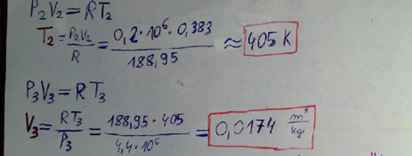 P₂V₂ = RT₂
T₂ = P₂V₂/R = 0,2·10⁶·0,383/188,95 ≈ 405 K
P₃V₃ = RT₃
V₃ = RT₃/P₃ = 188,95·405/4,4·10⁶ = 0,0174 m³/kg